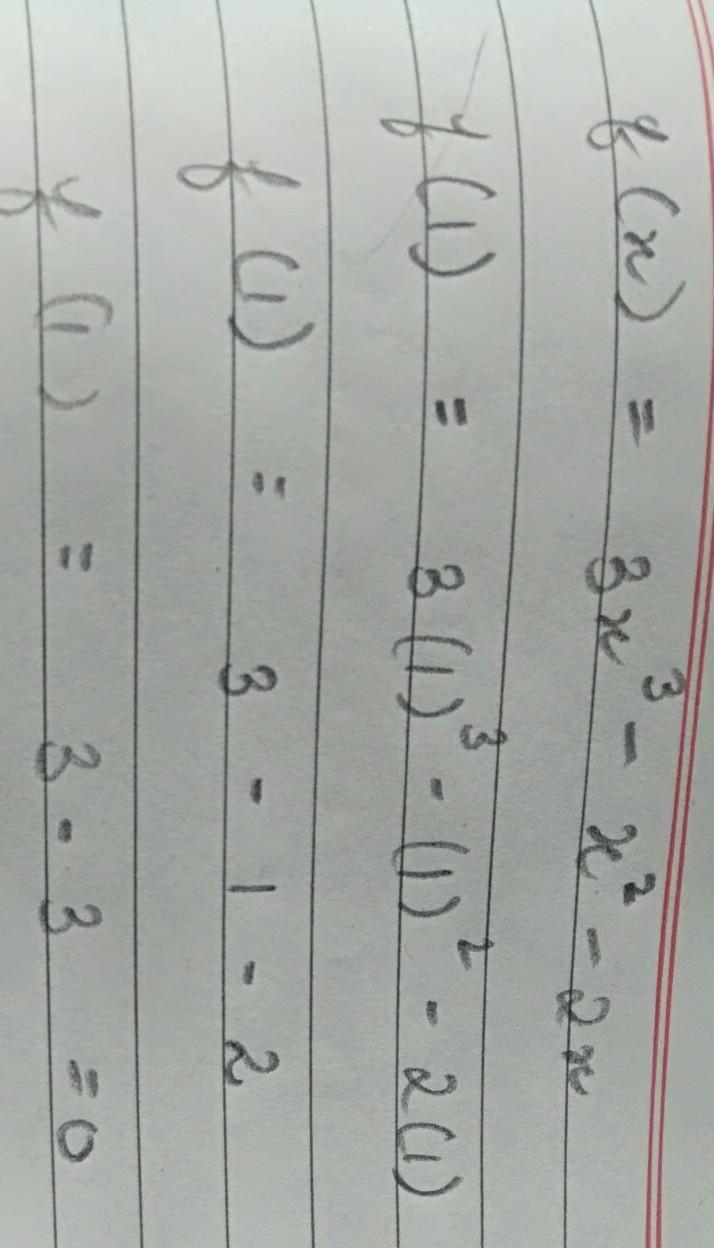 f(x) = 3x³ - x² - 2x
f(1) = 3(1)³ - (1)² - 2(1)
f(1) = 3 - 1 - 2
f(1) = 3 - 3 = 0